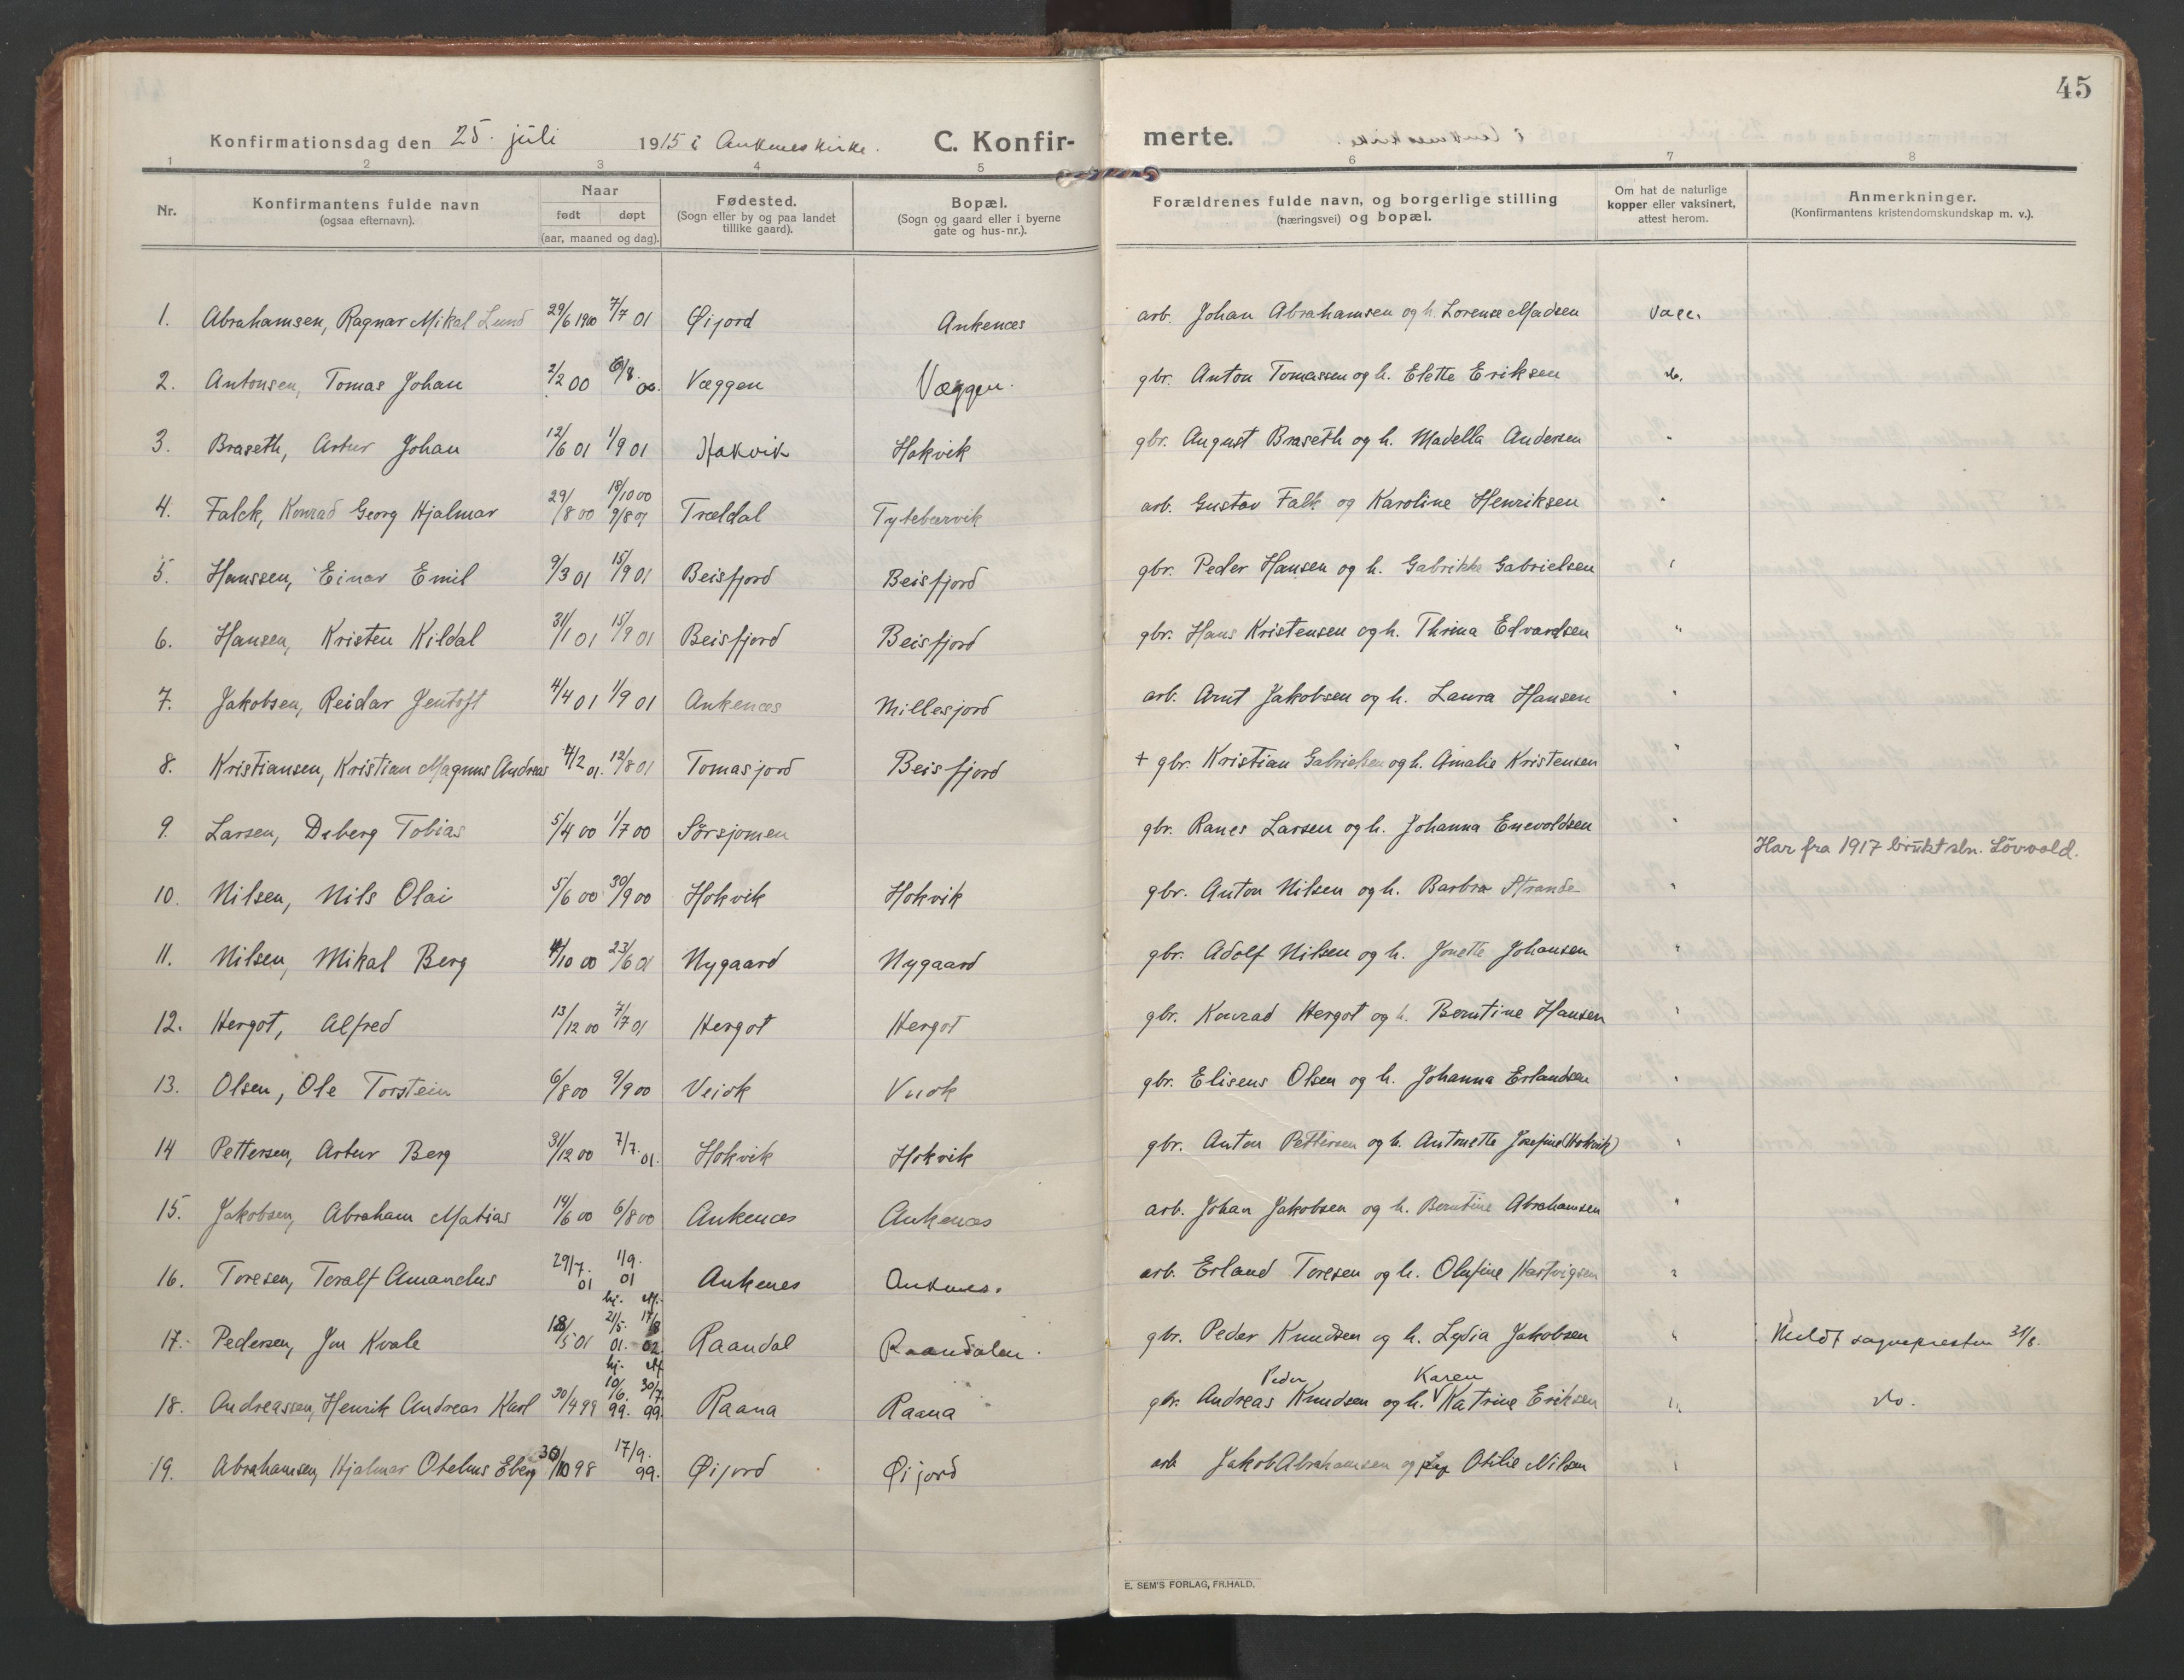 45
Konfirmationsdag den 25. juli 1915 i Ankenes kirke. C. Konfir- merte.
1 2 3 4 5 6 7 8
Nr. Konfirmantens fulde navn (ogsaa efternavn). Naar født døpt (aar, maaned og dag). Fødested. (Sogn eller by og paa landet tillike gaard). Bopæl. (Sogn og gaard eller i byerne gate og hus-nr.). Forældrenes fulde navn, og borgerlige stilling (næringsvei) og bopæl. Om hat de naturlige kopper eller vaksinert, attest herom. Anmerkninger. (Konfirmantens kristendomskundskap m. v.).
1. Abrahamsen, Ragnar Mikal Lund 29/6 1900 7/7 01 Øijord Ankenes arb. Johan Abrahamsen og h. Lorense Madsen Vacc.
2. Antonsen, Tomas Johan 2/2 00 6/8. 00. Væggen Væggen. gbr. Anton Tomassen og h. Elette Eriksen do.
3. Braseth, Artur Johan 12/6 01 1/9 01 Hakvik Hakvik gbr. August Braseth og h. Madella Andersen "
4. Falck, Konrad Georg Hjalmar 29/8 00 18/10 00 9/8 01 Træeldal Tytebærvik arb. Gustav Falk og Karoline Henriksen "
5. Hanssen, Einar Emil 9/3 01 15/9 01 Beisfjord Beisfjord gbr. Peder Hansen og h. Gabrikke Gabrielsen "
6. Hansen, Kristen Kildal 31/1 01 15/9 01 Beisfjord Beisfjord gbr. Hans Kristensen og h. Thrina Edvardsen "
7. Jakobsen, Reidar Jentoft 4/4 01 1/9 01 Ankenes Millesjord arb. Arnt Jakobsen og h. Laura Hansen "
8. Kristiansen, Kristian Magnus Andreas 4/2 01. 12/8 01 Tomasjord Beisfjord + gbr. Kristian Gabrielsen og h. Amalie Kristensen "
9. Larsen, Deberg Tobias 5/4 00 1/7 00 Sörsjomen gbr. Ranes Larsen og h. Johanna Enevoldsen " Har fra 1917 brukt sln. Lövvold.
10. Nilsen, Nils Olai 5/6 00 30/9 00 Hokvik Hokvik gbr. Anton Nilsen og h. Barbra Strande "
11. Nilsen, Mikal Berg 4/10 00 23/6 01 Nygaard Nygaard gbr. Adolf Nilsen og h. Jonette Johansen "
12. Hergot, Alfred 13/12 00 7/7 01 Hergot Hergot gbr. Konrad Hergot og h. Berntine Hansen "
13. Olsen, Ole Torstein 6/8 00 9/9 00 Veiok gbr. Eliseus Olsen og h. Johanna Erlandsen "
14 Pettersen, Artur Berg 31/12 00 7/7. 01. Hokvik Hokvik gbr. Anton Pettersen og h. Antonette Josefine (Hokvik) "
15. Jakobsen, Abraham Matias 14/6 00 6/8 00 Ankenes Ankenes arb. Johan Jakobsen og h. Berntine Abrahamsen "
16. Toresen, Toralf Amandus 29/7. 01 1/9. 01 Ankenes Ankenes. arb. Erland Toresen og h. Olufine Hartvigsen "
17. Pedersen, Jon Kvale 18/5 01 hj. 21/5. 01. st. 17/8 02. Raandal Raandalen. gbr. Peder Knudsen og h. Lydia Jakobsen " Meldt sognepresten 31/8.
18. Andreassen, Henrik Andreas Karl 30/4 99 hj. 10/6. 99. st. 30/7. 99. Raana Raana gbr. Andreas Peder Knudsen og h. Karen Katrine Eriksen " do.
19. Abrahamsen, Hjalmar Otelius Eberg 30/10 98 17/9. 99. Øijord Øijord arb. Jakob Abrahamsen og Otilie Nilsen "
E. SEM'S FORLAG, FR.HALD.